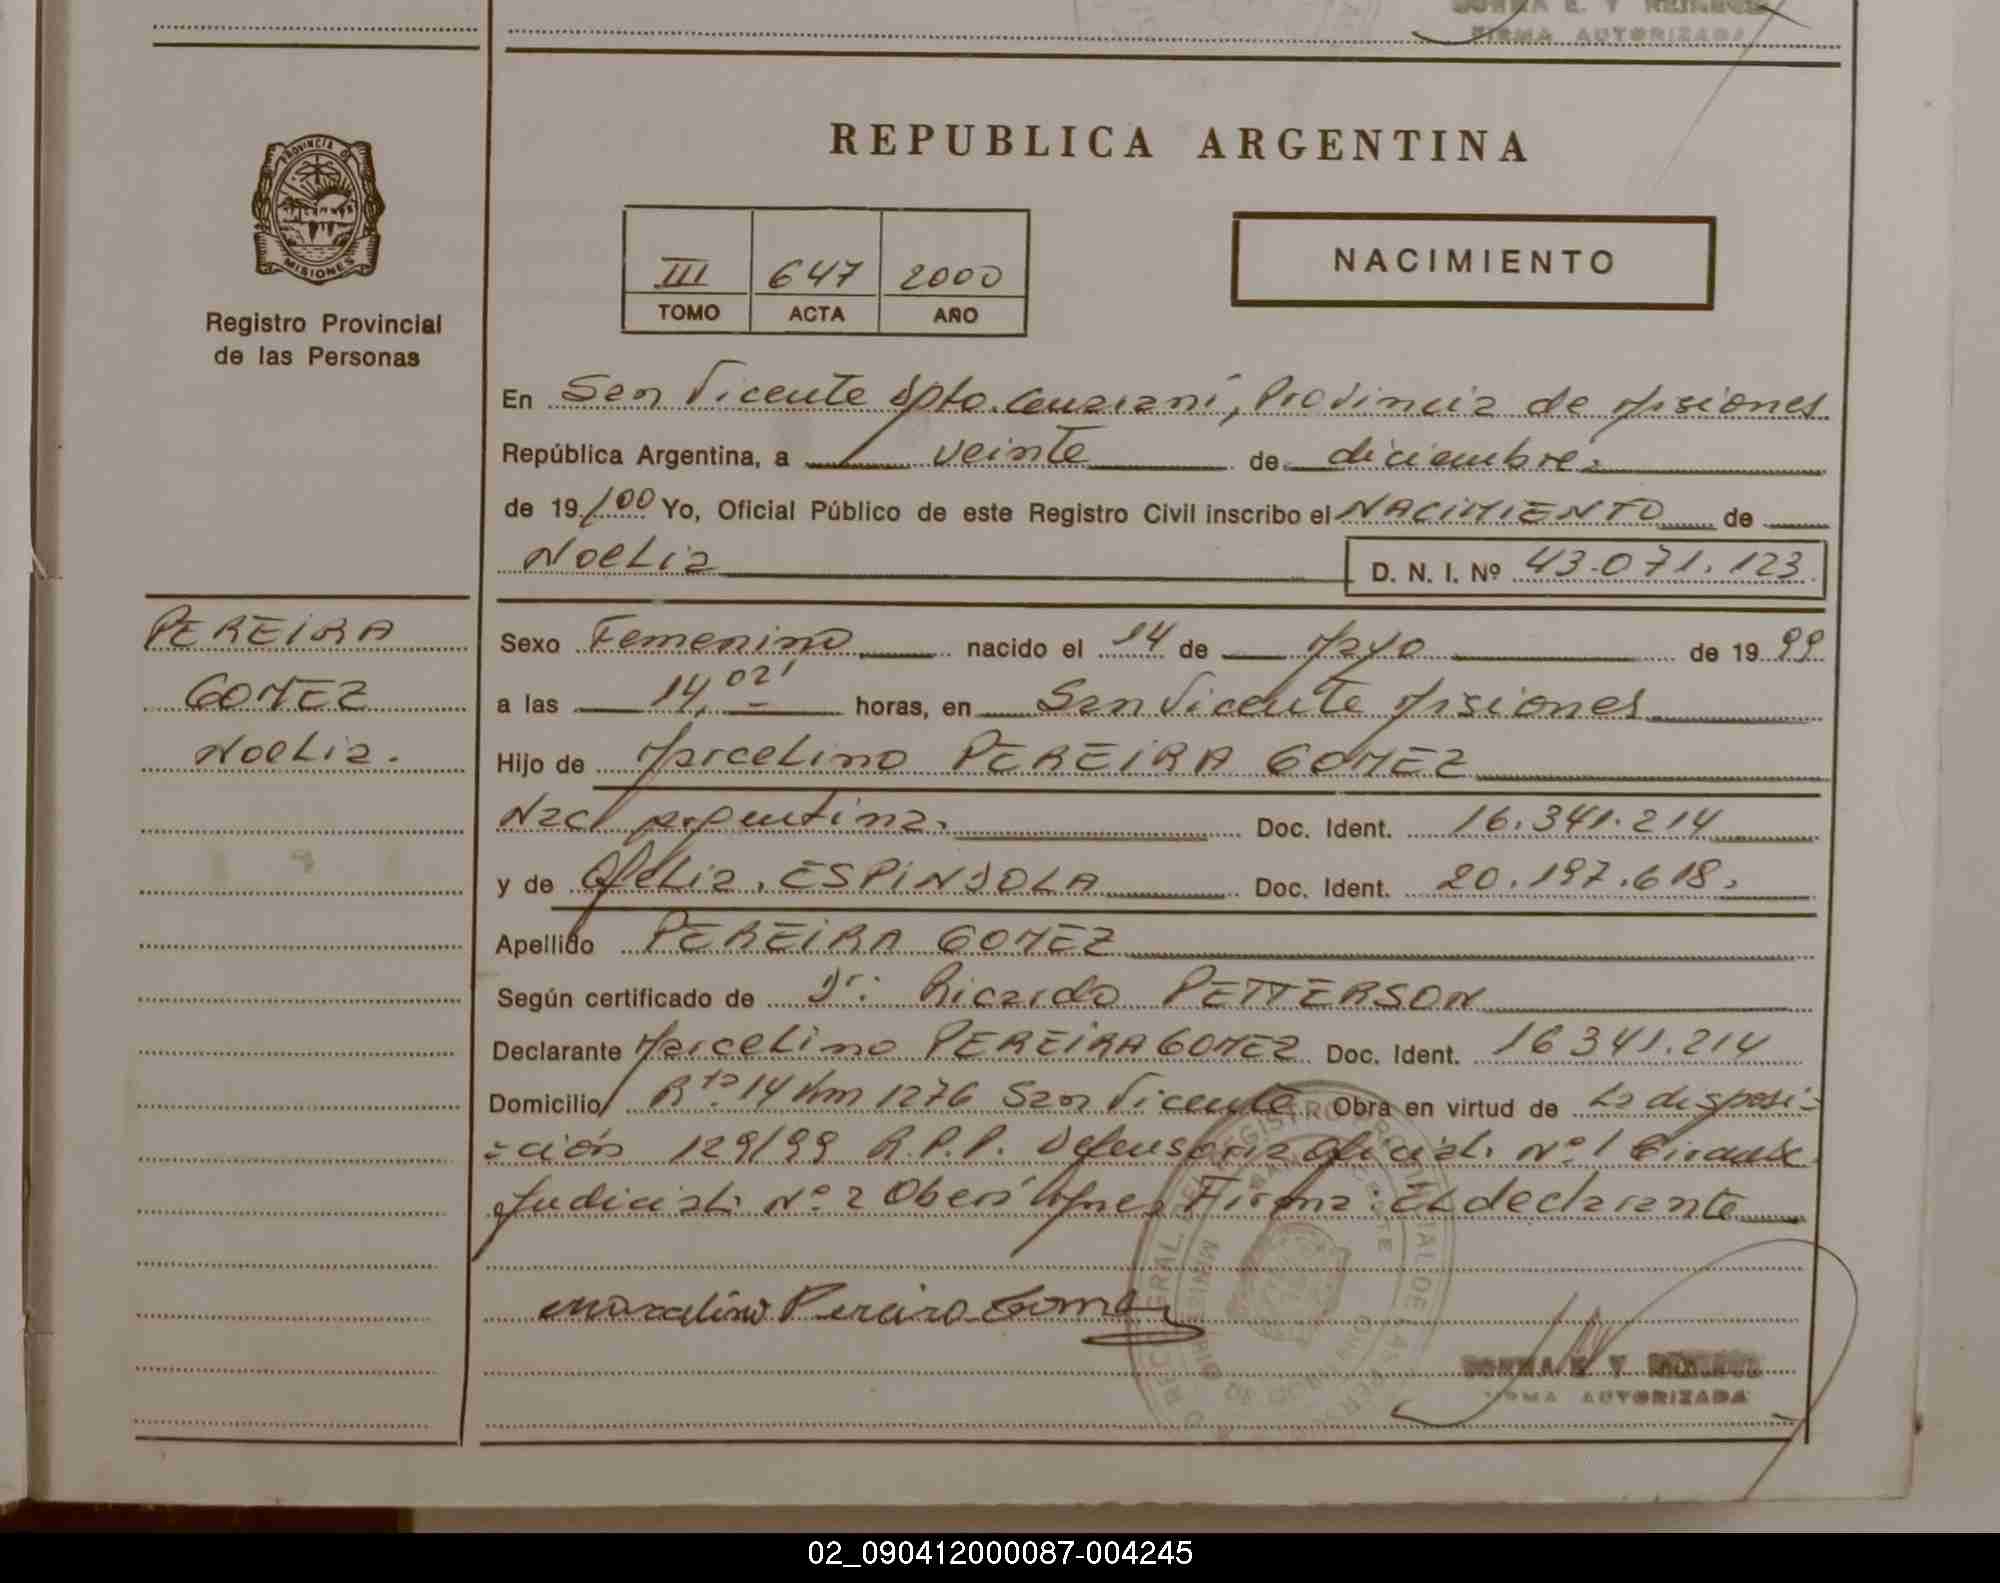 FIRMA AUTORIZADA
PROVINCIA DE
MISIONES
Registro Provincial
de las Personas
REPUBLICA ARGENTINA
III 647 2000
TOMO ACTA AÑO
NACIMIENTO
En San Vicente Dpto. Guaraní, Provincia de Misiones
República Argentina, a veinte de diciembre
de 19 /00 Yo, Oficial Público de este Registro Civil inscribo el NACIMIENTO de
Noelia D. N. I. Nº 43.071.123
PEREIRA
GOMEZ
Noelia.
Sexo Femenino nacido el 14 de Mayo de 19 99
a las 14,02' horas, en San Vicente Misiones
Hijo de Marcelino PEREIRA GOMEZ
Nac. Argentina. Doc. Ident. 16.341.214
y de Ofelia. ESPINDOLA Doc. Ident. 20.197.618.
Apellido PEREIRA GOMEZ
Según certificado de Dr. Ricardo PETTERSON
Declarante Marcelino PEREIRA GOMEZ Doc. Ident. 16 341.214
Domicilio Rta. 14 Km 1276 San Vicente Obra en virtud de La disposi-
-ción 129/99 R.P.P. Defensoria Oficial. Nº 1 Circunsc.
Judicial. Nº 2 Oberá Mnes Firma: El declarante
Marcelino Pereira Gomez
FIRMA AUTORIZADA
02_090412000087-004245